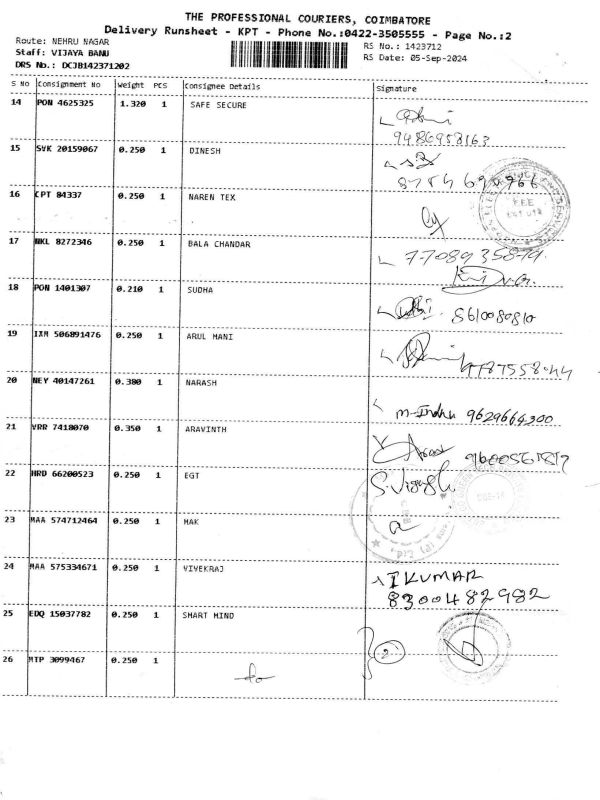 THE PROFESSIONAL COURIERS, COIMBATORE
Delivery Runsheet - KPT - Phone No.:0422-3505555 - Page No.:2
Route: NEHRU NAGAR
RS No.: 1423712
Staff: VIJAYA BANU
RS Date: 05-Sep-2024
DRS No.: DCJB142371202
S No Consignment No Weight PCS Consignee Details Signature
14 PON 4625325 1.320 1 SAFE SECURE
9486958163
15 SVK 20159067 0.250 1 DINESH
16 CPT 84337 0.250 1 NAREN TEX
17 NKL 8272346 0.250 1 BALA CHANDAR
18 PON 1401307 0.210 1 SUDHA
19 IXM 506891476 0.250 1 ARUL MANI
20 NEY 40147261 0.380 1 NARASH
m-Indhu 9629664300
21 VRR 7418070 0.350 1 ARAVINTH
22 HRD 66200523 0.250 1 EGT
23 MAA 574712464 0.250 1 MAK
24 MAA 575334671 0.250 1 VIVEKRAJ
KUMAR
8300482982
25 EDQ 15037782 0.250 1 SMART MIND
26 MTP 3099467 0.250 1 do
2